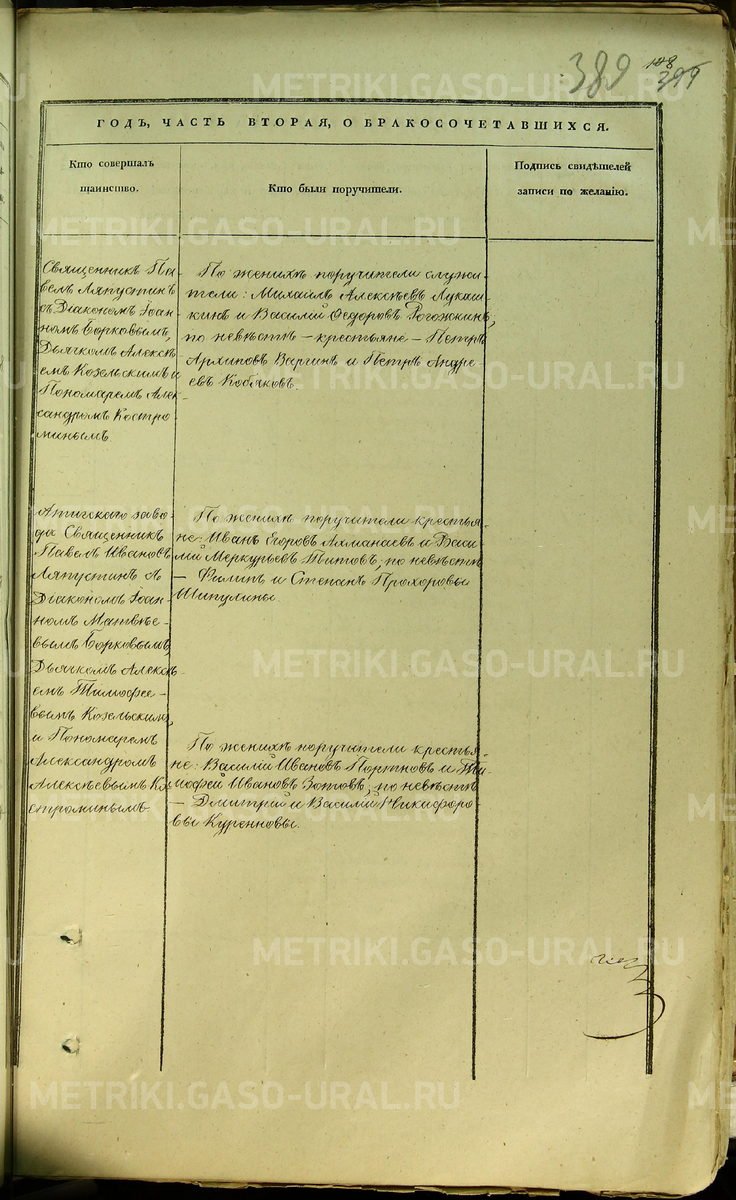 389 108
399
ГОДЪ, ЧАСТЬ ВТОРАЯ, О БРАКОСОЧЕТАВШИХСЯ.
Кто совершалъ
таинство.
Кто были поручители.
Подпись свидѣтелей
записи по желанію.
Священникъ Па-
велъ Ляпустинъ
съ Діакономъ Іоан-
номъ Борковымъ,
Дьячкомъ Алексѣ-
емъ Козельскимъ и
Пономаремъ Алек-
сандромъ Костро-
минымъ.
По женихѣ поручители служи-
тели: Михаилъ Алексѣевъ Лукаш-
кинъ и Василій Ѳедоровъ Рогожкинъ,
по невѣстѣ – крестьяне – Петръ
Архиповъ Варгинъ и Петръ Андре-
евъ Кобяковъ.
Атигскаго заво-
да Священникъ
Павелъ Ивановъ
Ляпустинъ съ
Діакономъ Іоан-
номъ Матвѣе-
вымъ Борковымъ,
Дьячкомъ Алексѣ-
емъ Тимофее-
вымъ Козельскимъ,
и Пономаремъ
Александромъ
Алексѣевымъ Ко-
строминымъ.
По женихѣ поручители крестья-
не: Иванъ Егоровъ Ахманаевъ и Васи-
лій Меркурьевъ Титовъ, по невѣстѣ
– Филипъ и Степанъ Прохоровы
Шипулины.
По женихѣ поручители крестья-
не: Василій Ивановъ Портновъ и Ти-
мофей Ивановъ Зотовъ; по невѣстѣ
– Дмитрій и Василій Никифоро-
вы Куренновы.
METRIKI.GASO-URAL.RU